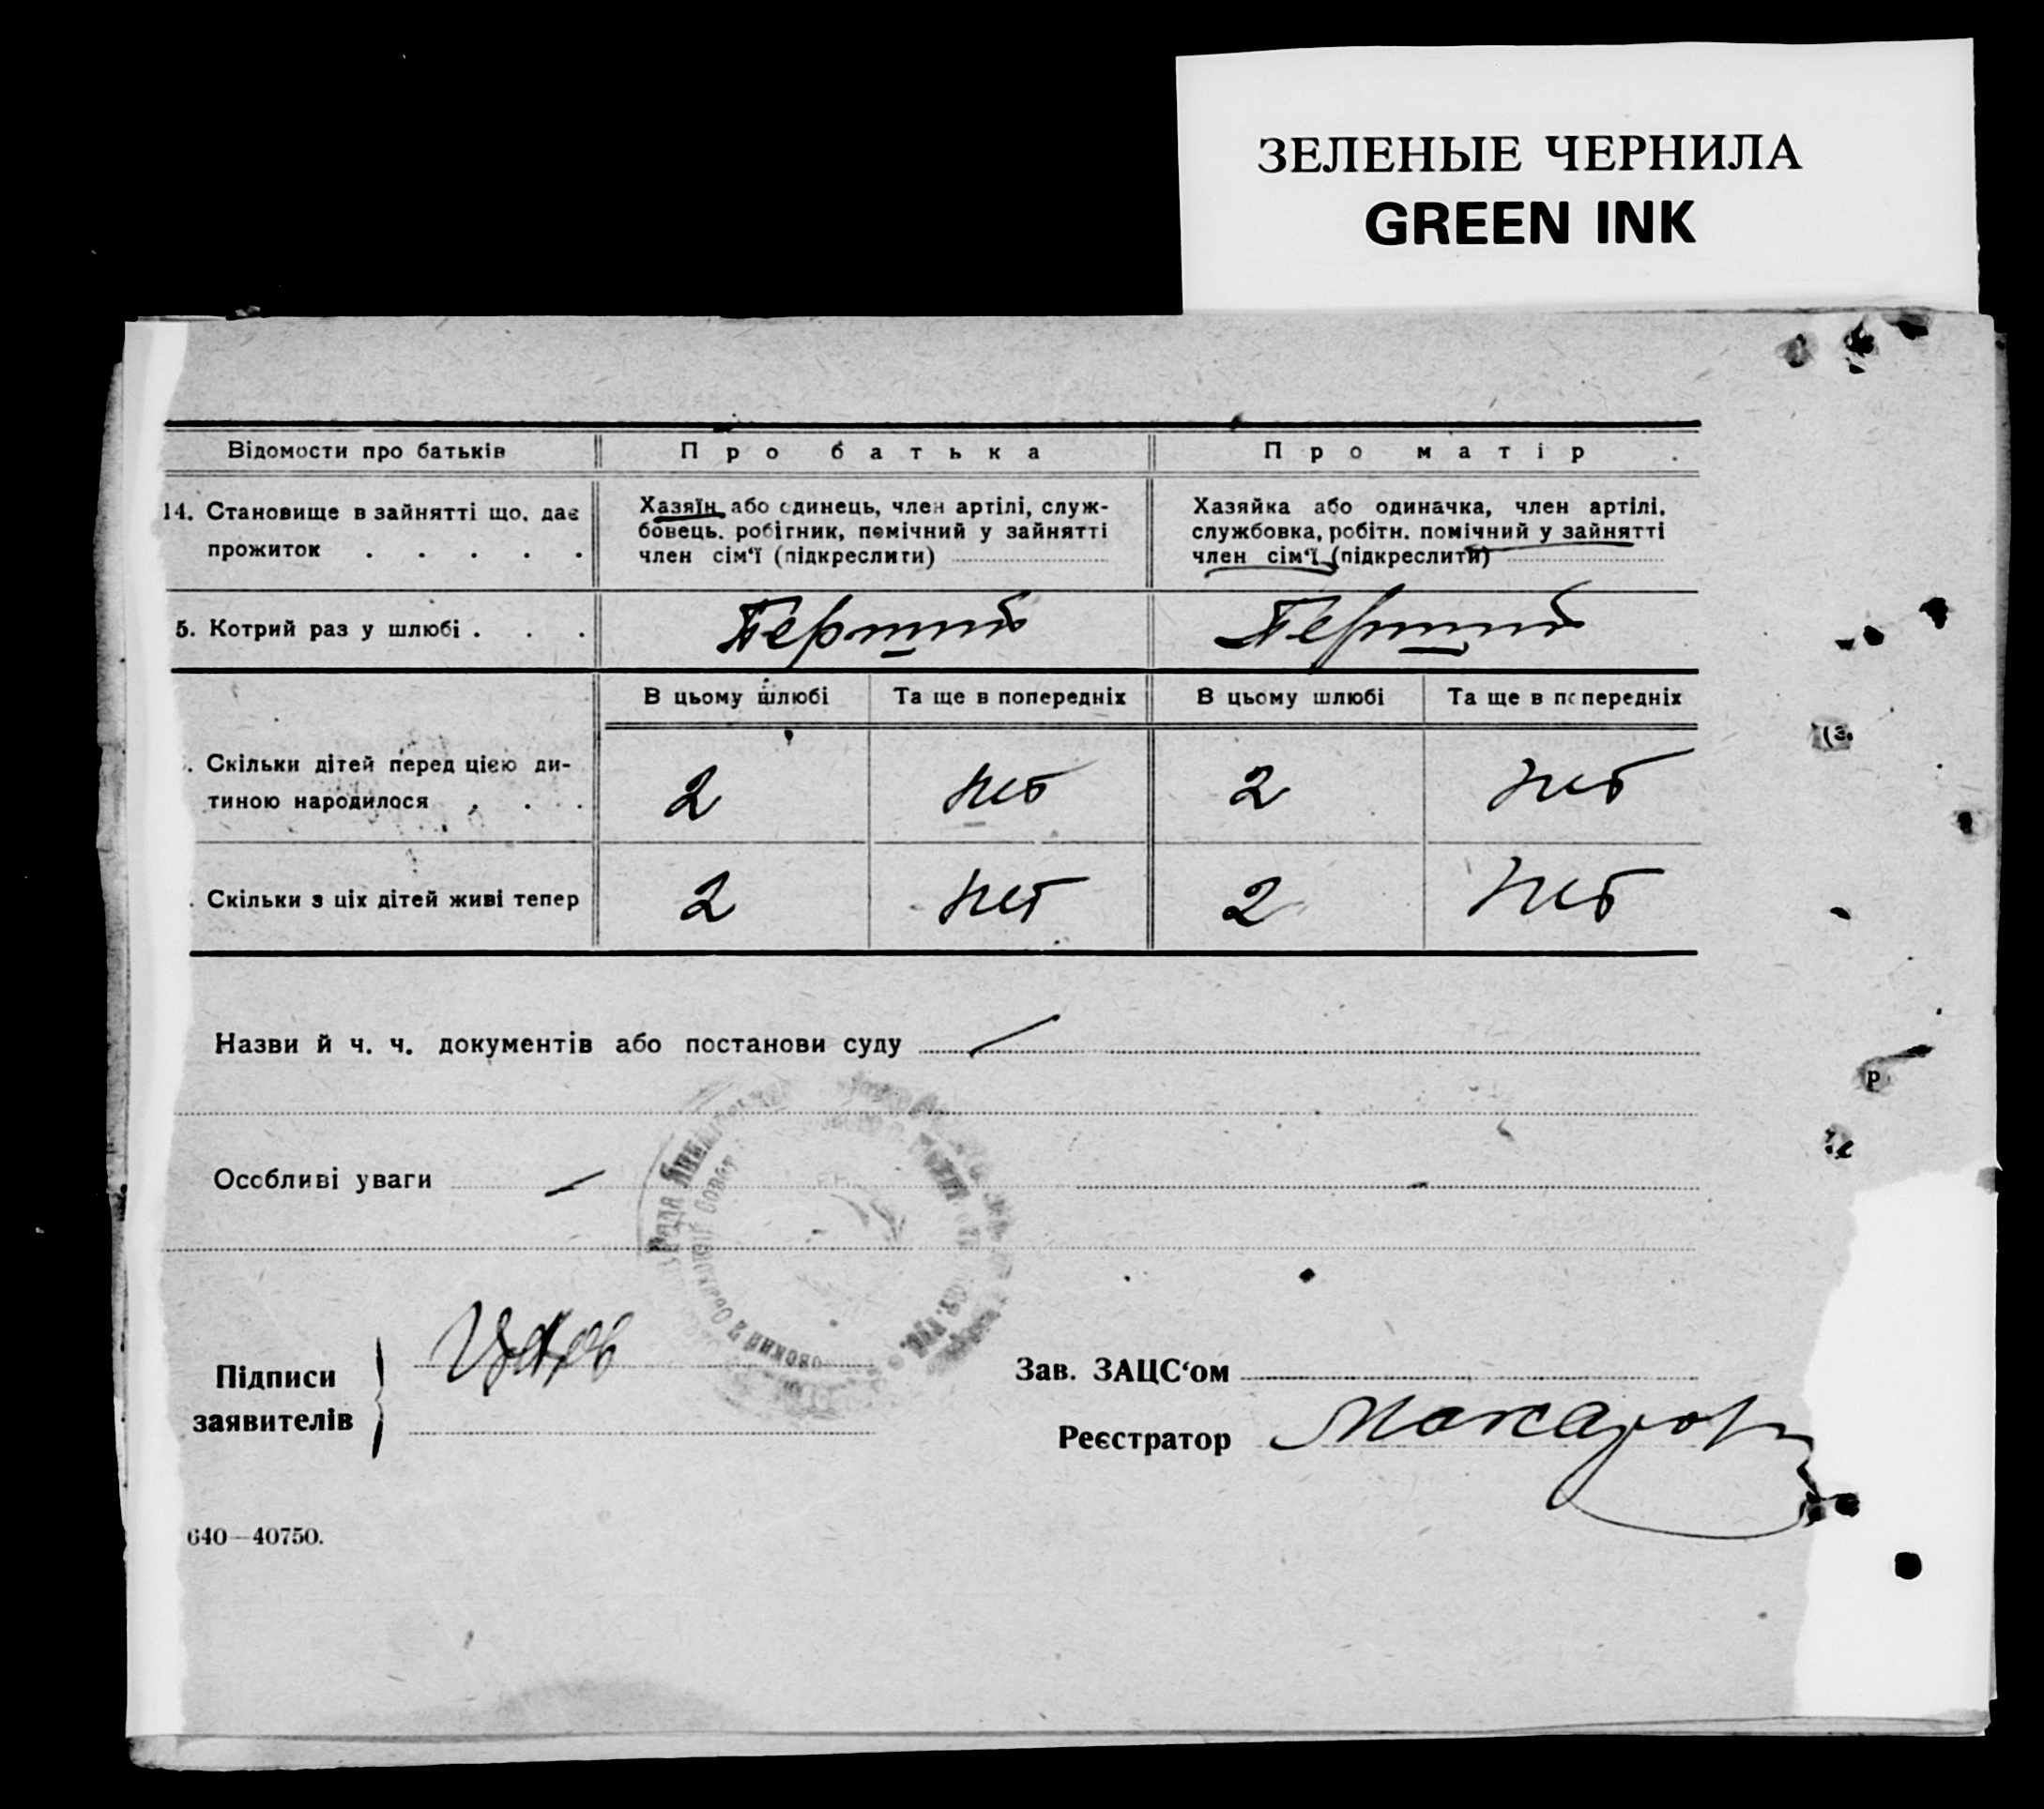 ЗЕЛЕНЫЕ ЧЕРНИЛА
GREEN INK
Відомости про батьків Про батька Про матір
14. Становище в зайнятті що, дає прожиток . . . . .
Хазяїн або одинець, член артілі, служ-
бовець, робітник, помічний у зайнятті
член сім'ї (підкреслити)
Хазяйка або одиначка, член артілі,
службовка, робітн. помічний у зайнятті
член сім'ї (підкреслити)
5. Котрий раз у шлюбі . . . Перший Перший
В цьому шлюбі Та ще в попередніх В цьому шлюбі Та ще в попередніх
. Скільки дітей перед цією ди-
тиною народилося . . . 2 нет 2 нет
. Скільки з ціх дітей живі тепер 2 нет 2 нет
Назви й ч. ч. документів або постанови суду
Особливі уваги
Рада
Сельский Совет
Підписи
заявителів
Зав. ЗАЦС'ом
Реєстратор Макаров
640—40750.